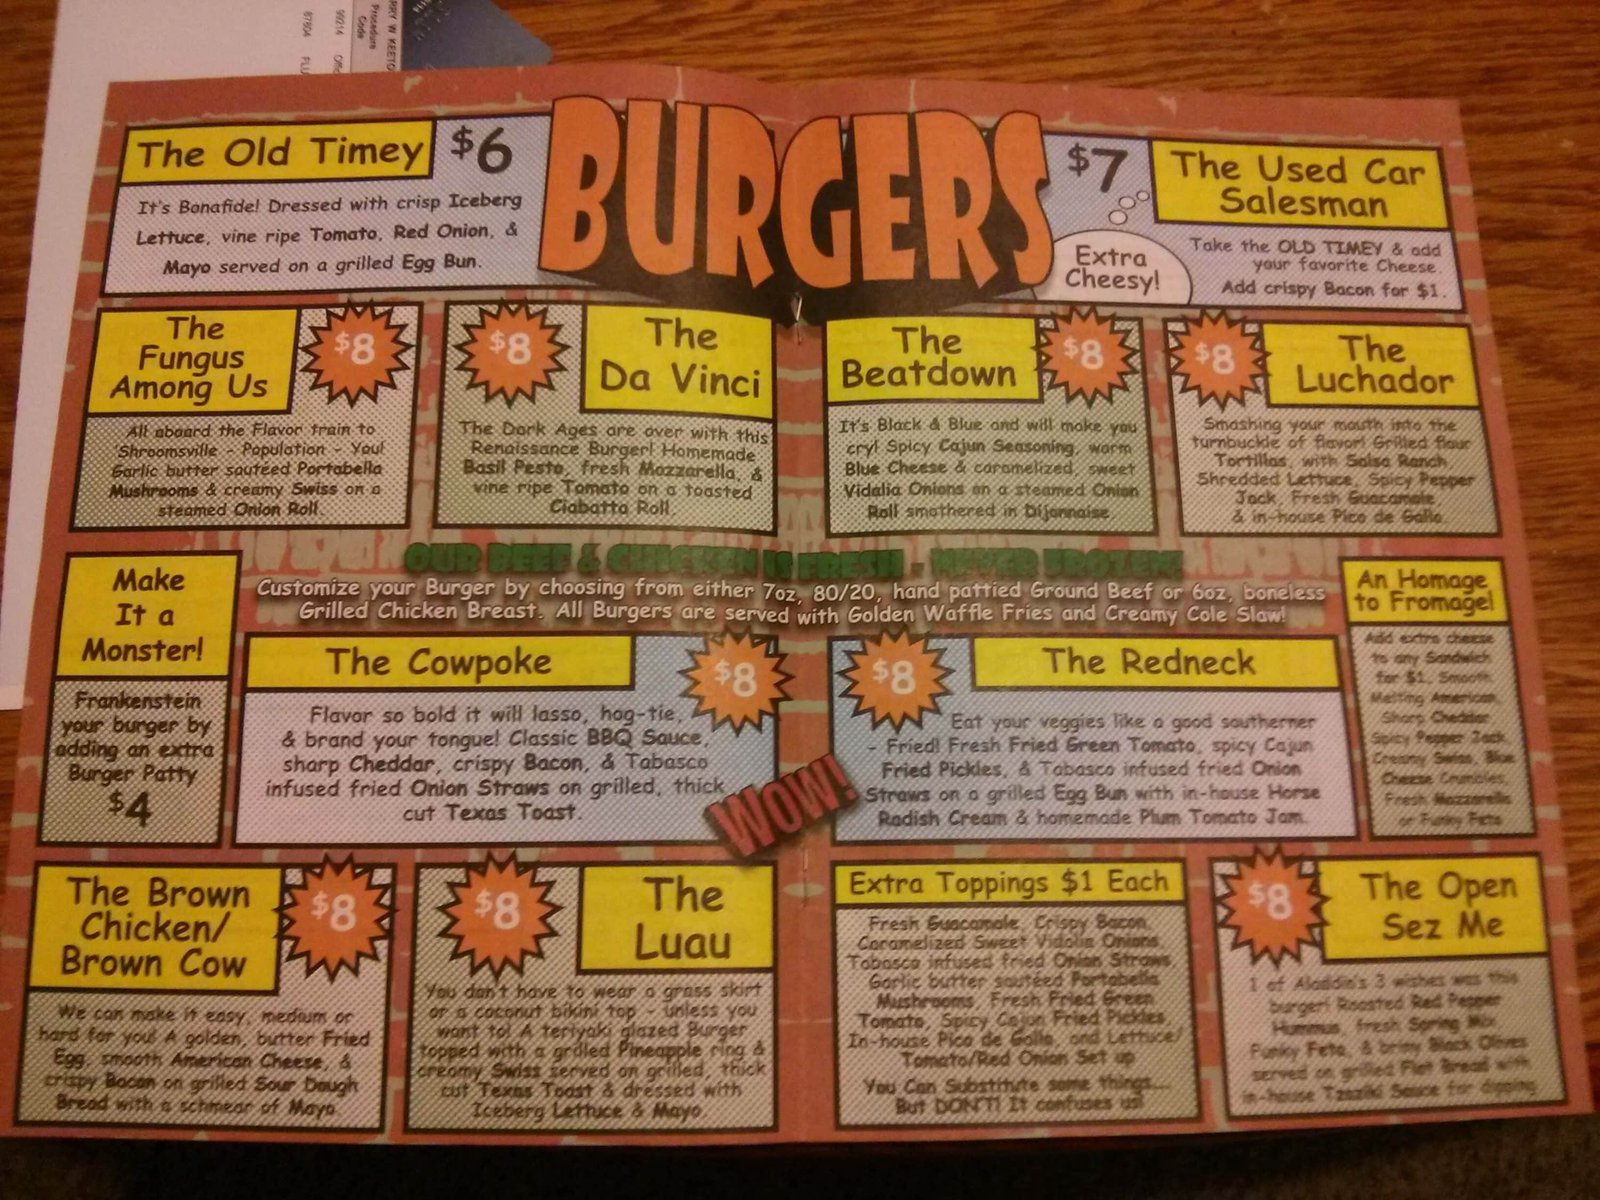 RRY W KEETO
Procedure
Code
99214
87804
FLU
BURGERS
The Old Timey
$6
It's Bonafide! Dressed with crisp Iceberg
Lettuce, vine ripe Tomato, Red Onion, &
Mayo served on a grilled Egg Bun.
$7
The Used Car
Salesman
Extra
Cheesy!
Take the OLD TIMEY & add
your favorite Cheese.
Add crispy Bacon for $1.
The
Fungus
Among Us
$8
All aboard the Flavor train to
'Shroomsville - Population - You!
Garlic butter sautéed Portabella
Mushrooms & creamy Swiss on a
steamed Onion Roll.
$8
The
Da Vinci
The Dark Ages are over with this
Renaissance Burger! Homemade
Basil Pesto, fresh Mozzarella, &
vine ripe Tomato on a toasted
Ciabatta Roll.
The
Beatdown
$8
It's Black & Blue and will make you
cry! Spicy Cajun Seasoning, warm
Blue Cheese & caramelized, sweet
Vidalia Onions on a steamed Onion
Roll smothered in Dijonnaise.
$8
The
Luchador
Smashing your mouth into the
turnbuckle of flavor! Grilled flour
Tortillas, with Salsa Ranch,
Shredded Lettuce, Spicy Pepper
Jack, Fresh Guacamole
& in-house Pico de Gallo.
OUR BEEF & CHICKEN IS FRESH - NEVER FROZEN!
Customize your Burger by choosing from either 7oz, 80/20, hand pattied Ground Beef or 6oz, boneless
Grilled Chicken Breast. All Burgers are served with Golden Waffle Fries and Creamy Cole Slaw!
Make
It a
Monster!
Frankenstein
your burger by
adding an extra
Burger Patty
$4
The Cowpoke
$8
Flavor so bold it will lasso, hog-tie,
& brand your tongue! Classic BBQ Sauce,
sharp Cheddar, crispy Bacon, & Tabasco
infused fried Onion Straws on grilled, thick
cut Texas Toast.
WOW!
$8
The Redneck
Eat your veggies like a good southerner
- Fried! Fresh Fried Green Tomato, spicy Cajun
Fried Pickles, & Tabasco infused fried Onion
Straws on a grilled Egg Bun with in-house Horse
Radish Cream & homemade Plum Tomato Jam.
An Homage
to Fromage!
Add extra cheese
to any Sandwich
for $1. Smooth
Melting American,
Sharp Cheddar
Spicy Pepper Jack,
Creamy Swiss, Blue
Cheese Crumbles,
Fresh Mozzarella
or Funky Feta
The Brown
Chicken/
Brown Cow
$8
We can make it easy, medium or
hard for you! A golden, butter Fried
Egg, smooth American Cheese, &
crispy Bacon on grilled Sour Dough
Bread with a schmear of Mayo.
$8
The
Luau
You don't have to wear a grass skirt
or a coconut bikini top - unless you
want to! A teriyaki glazed Burger
topped with a grilled Pineapple ring &
creamy Swiss served on grilled, thick
cut Texas Toast & dressed with
Iceberg Lettuce & Mayo.
Extra Toppings $1 Each
Fresh Guacamole, Crispy Bacon,
Caramelized Sweet Vidalia Onions,
Tabasco infused fried Onion Straws,
Garlic butter sautéed Portabella
Mushrooms, Fresh Fried Green
Tomato, Spicy Cajun Fried Pickles,
In-house Pico de Gallo, and Lettuce/
Tomato/Red Onion Set up
You Can Substitute some things...
But DON'T! It confuses us!
$8
The Open
Sez Me
1 of Aladdin's 3 wishes was this
burger! Roasted Red Pepper
Hummus, fresh Spring Mix,
Funky Feta, & briny Black Olives
served on grilled Flat Bread with
in-house Tzaziki Sauce for dipping